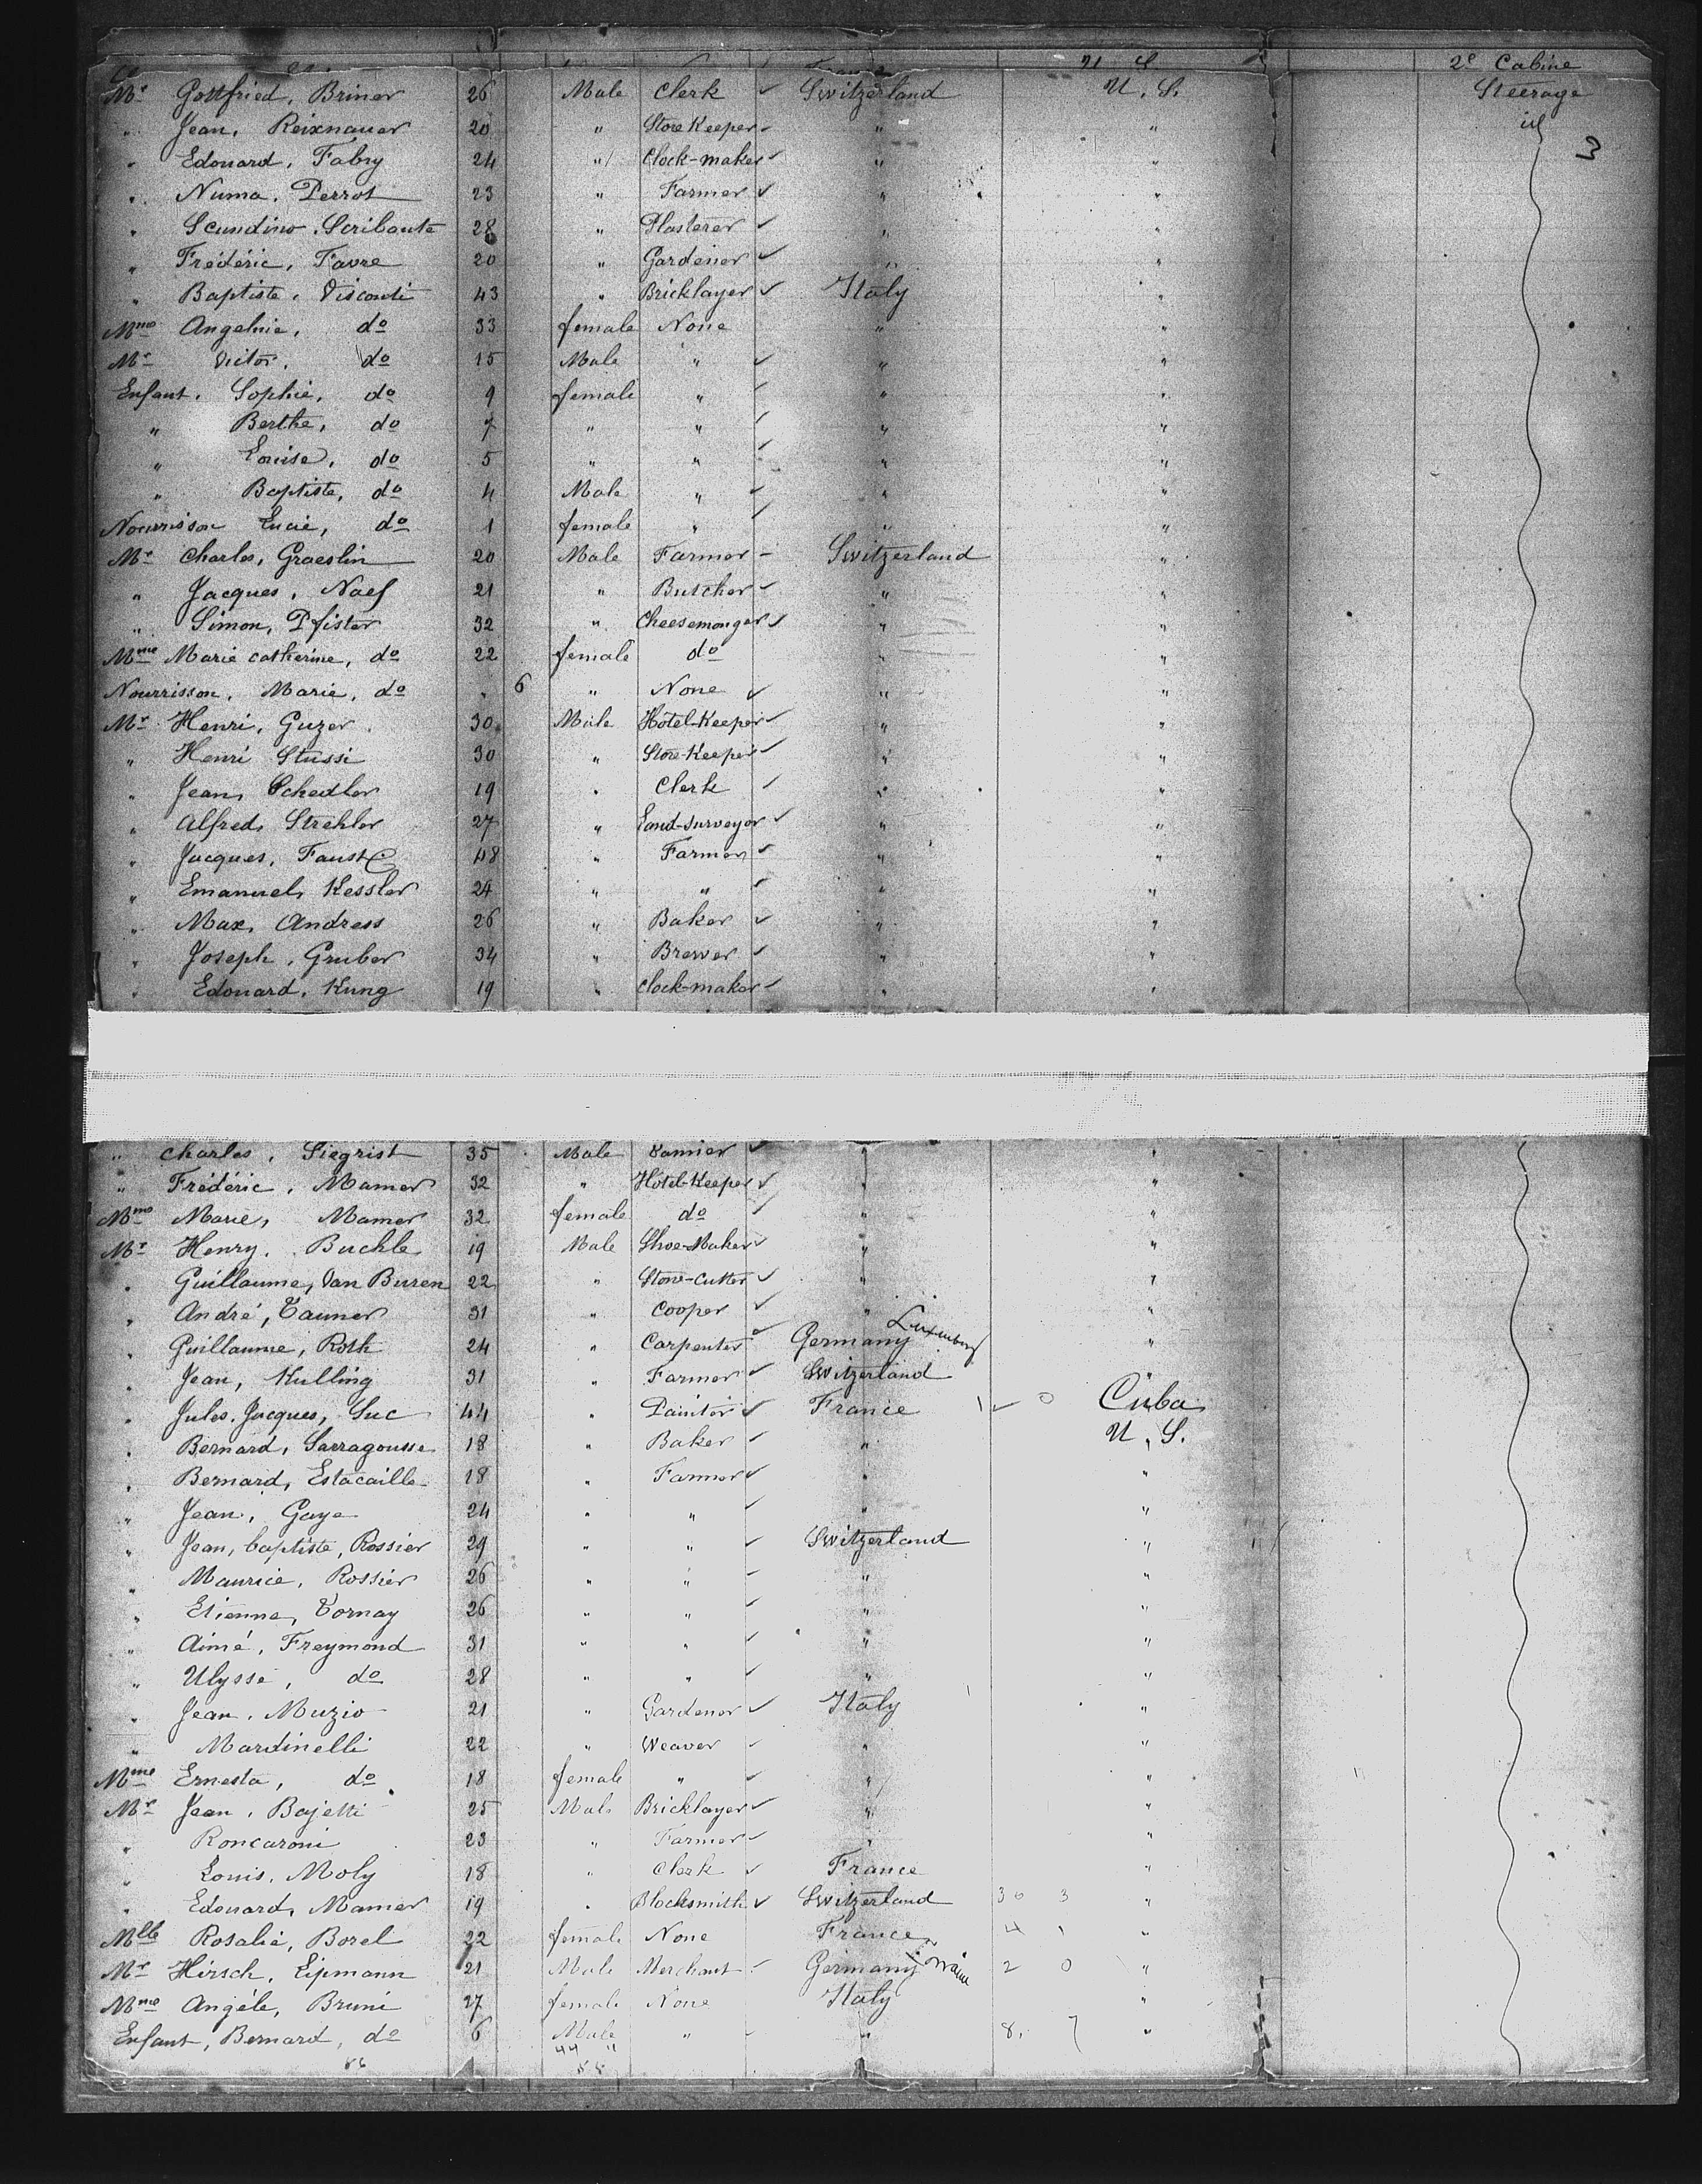 U S 2e Cabine
Mr Gottfried, Briner 26 Male Clerk Switzerland U. S. Steerage
" Jean, Reixnauer 20 " Store Keeper " " id
" Edouard, Fabry 24 " Clock-maker " " 3
" Numa, Perrot 23 " Farmer " "
" Scundino, Scribante 28 " Plasterer " "
" Frédéric, Favre 20 " Gardener " "
" Baptiste, Visconti 43 " Bricklayer Italy "
Mme Angelnie, do 33 female None " "
Mr Victor, do 15 Male " " "
Enfant, Sophie, do 9 female " " "
" Berthe, do 7 " " " "
" Louise, do 5 " " " "
" Baptiste, do 4 Male " " "
Nourrisson Lucie, do 1 female " " "
Mr Charles, Graeslin 20 Male Farmer Switzerland "
" Jacques, Naef 21 " Butcher " "
" Simon, Pfister 32 " Cheesemonger " "
Mme Marie catherine, do 22 female do " "
Nourrisson, Marie, do " 6 " None " "
Mr Henri, Guzer 30 Male Hotel-Keeper " "
" Henri Stüssi 30 " Store-Keeper " "
" Jean, Schedler 19 " Clerk " "
" Alfred, Strehler 27 " Land-surveyor " "
" Jacques, Faust 48 " Farmer " "
" Emanuel, Kessler 24 " " " "
" Max, Andress 26 " Baker " "
" Joseph, Gruber 34 " Brewer " "
" Edouard, Kung 19 " Clock-maker " "
" Charles, Siegrist 35 Male " "
" Frédéric, Mamer 32 " Hotel-Keeper " "
Mme Marie, Mamer 32 female do " "
Mr Henry, Buchle 19 Male Shoe-Maker " "
" Guillaume, Van Buren 22 " Stone-Cutter " "
" André, Tanner 31 " Cooper " "
" Guillaume, Roth 24 " Carpenter Germany Luxemburg "
" Jean, Kulling 31 " Farmer Switzerland
" Jules, Jacques, Suc 44 " Painter France 1 0 Cuba
" Bernard, Sarragousse 18 " Baker " U. S.
" Bernard, Estacaille 18 " Farmer " "
" Jean, Gaye 24 " " " "
" Jean, baptiste, Rossier 29 " " Switzerland "
" Maurice, Rossier 26 " " " "
" Etienne, Tornay 26 " " " "
" Aimé, Freymond 31 " " " "
" Ulysse, do 28 " " " "
" Jean, Muzio 21 " Gardener Italy "
" Mardinelli 22 " Weaver " "
Mme Ernesta, do 18 female " " "
Mr Jean, Bajetti 25 Male Bricklayer " "
" Roncaroni 23 " Farmer " "
" Louis, Moly 18 " Clerk France "
" Edouard, Mamer 19 " Blacksmith Switzerland 30 3 "
Mlle Rosalie, Borel 22 female None France 4 1 "
Mr Hirsch, Lipmann 21 Male Merchant Germany 2 0 "
Mme Angèle, Bruni 27 female None Italy "
Enfant, Bernard, do 6 Male " " 8 7 "
44 "